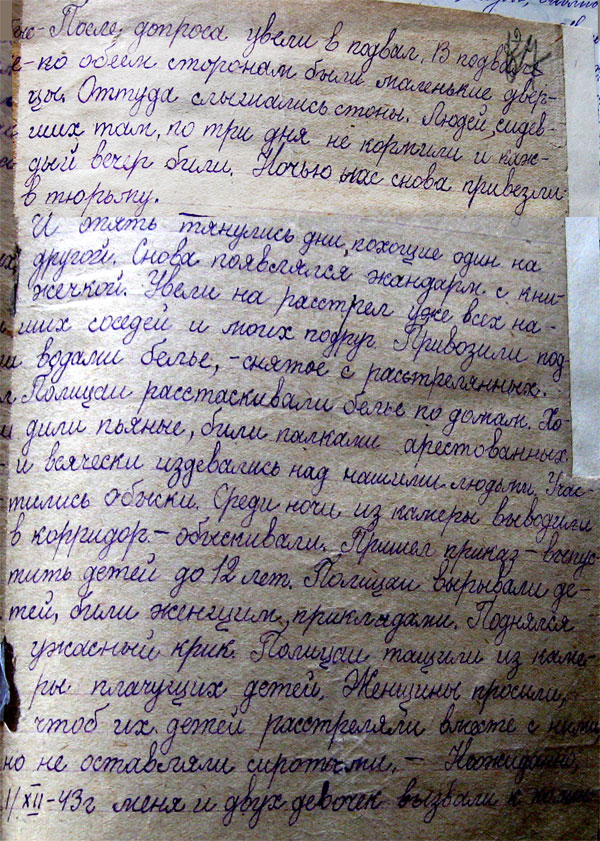 После допроса увели в подвал. В подвале
по обеим сторонам были маленькие двер-
цы. Оттуда слышались стоны. Людей, сидев-
ших там, по три дня не кормили и каж-
дый вечер били. Ночью нас снова привезли
в тюрьму.
И опять тянулись дни, похощие один на
другой. Снова появлялся жандарм с кни-
жечкой. Увели на расстрел уже всех на-
ших соседей и моих подруг. Привозили под
водами белье, - снятое с расстрелянных.
Полицаи расстаскивали белье по домам. Хо-
дили пьяные, били палками арестованных
и всячески издевались над нашими людьми. Учас-
тились обыски. Среди ночи из камеры выводили
в корридор - обыскивали. Пришел приказ - выпус-
тить детей до 12 лет. Полицаи вырывали де-
тей, били женщин прикладами. Поднялся
ужасный крик. Полицаи тащили из каме-
ры плачущих детей. Женщины просили,
чтоб их детей расстреляли вместе с ними,
но не оставляли сиротыми. - Неожиданно,
1/XII-43г меня и двух девочек вызвали к